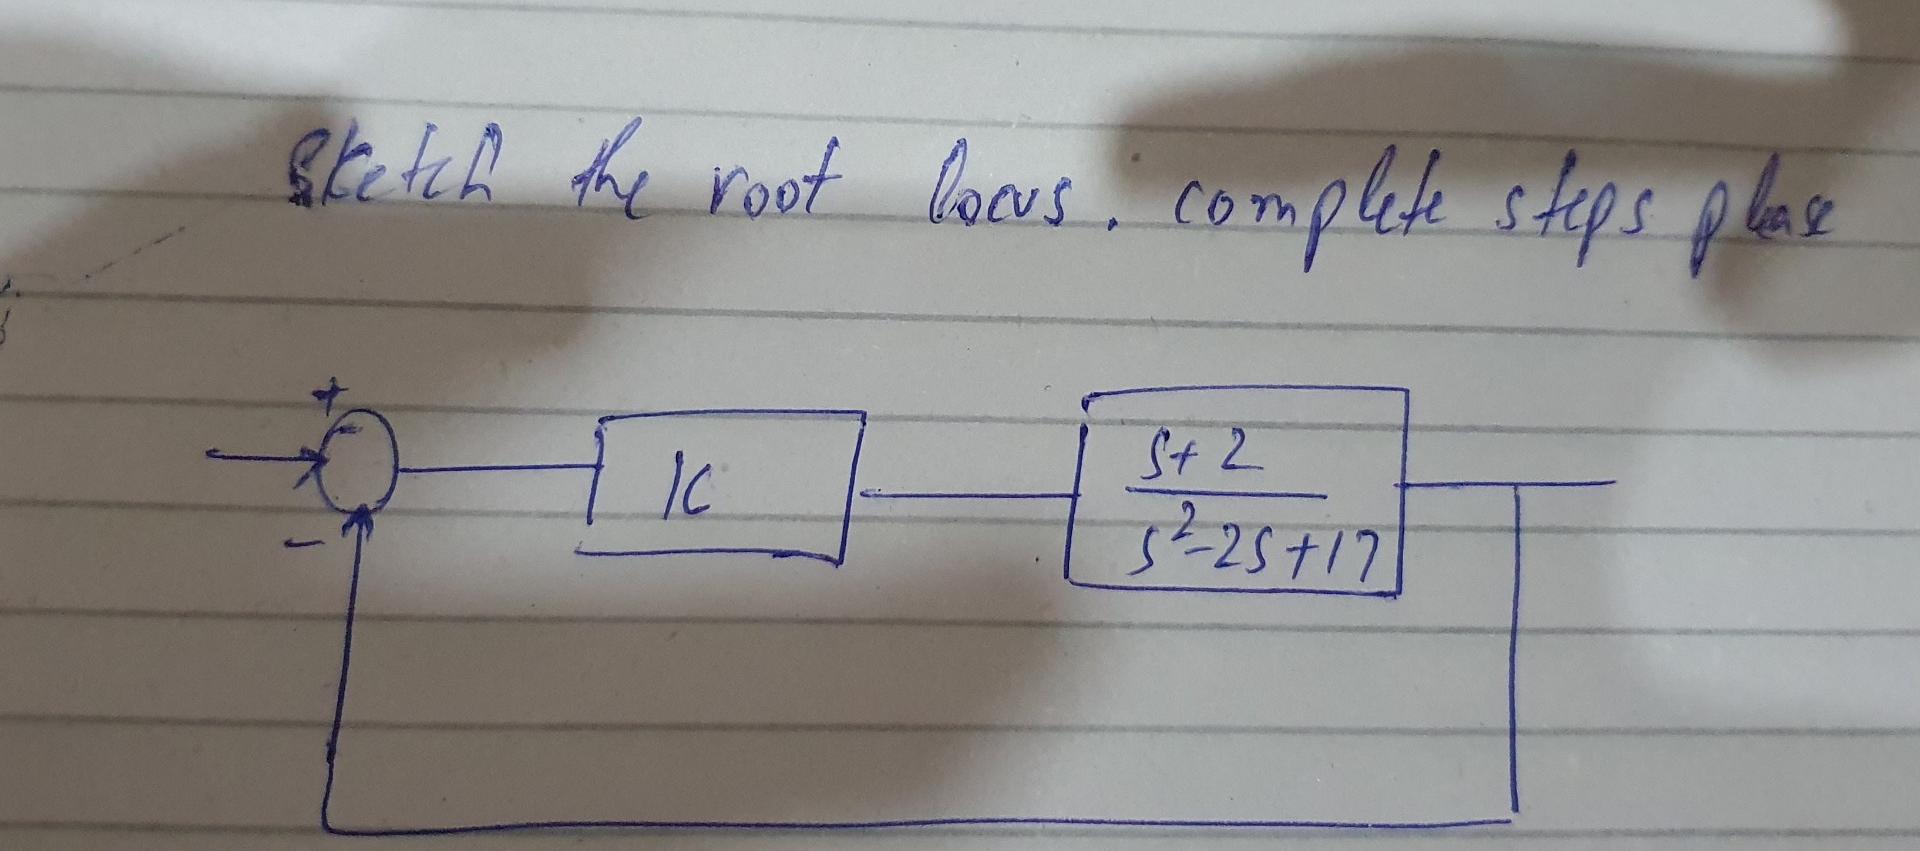 Sketch the root locus. complete steps please
+
K
s+2
s²-2s+17
-